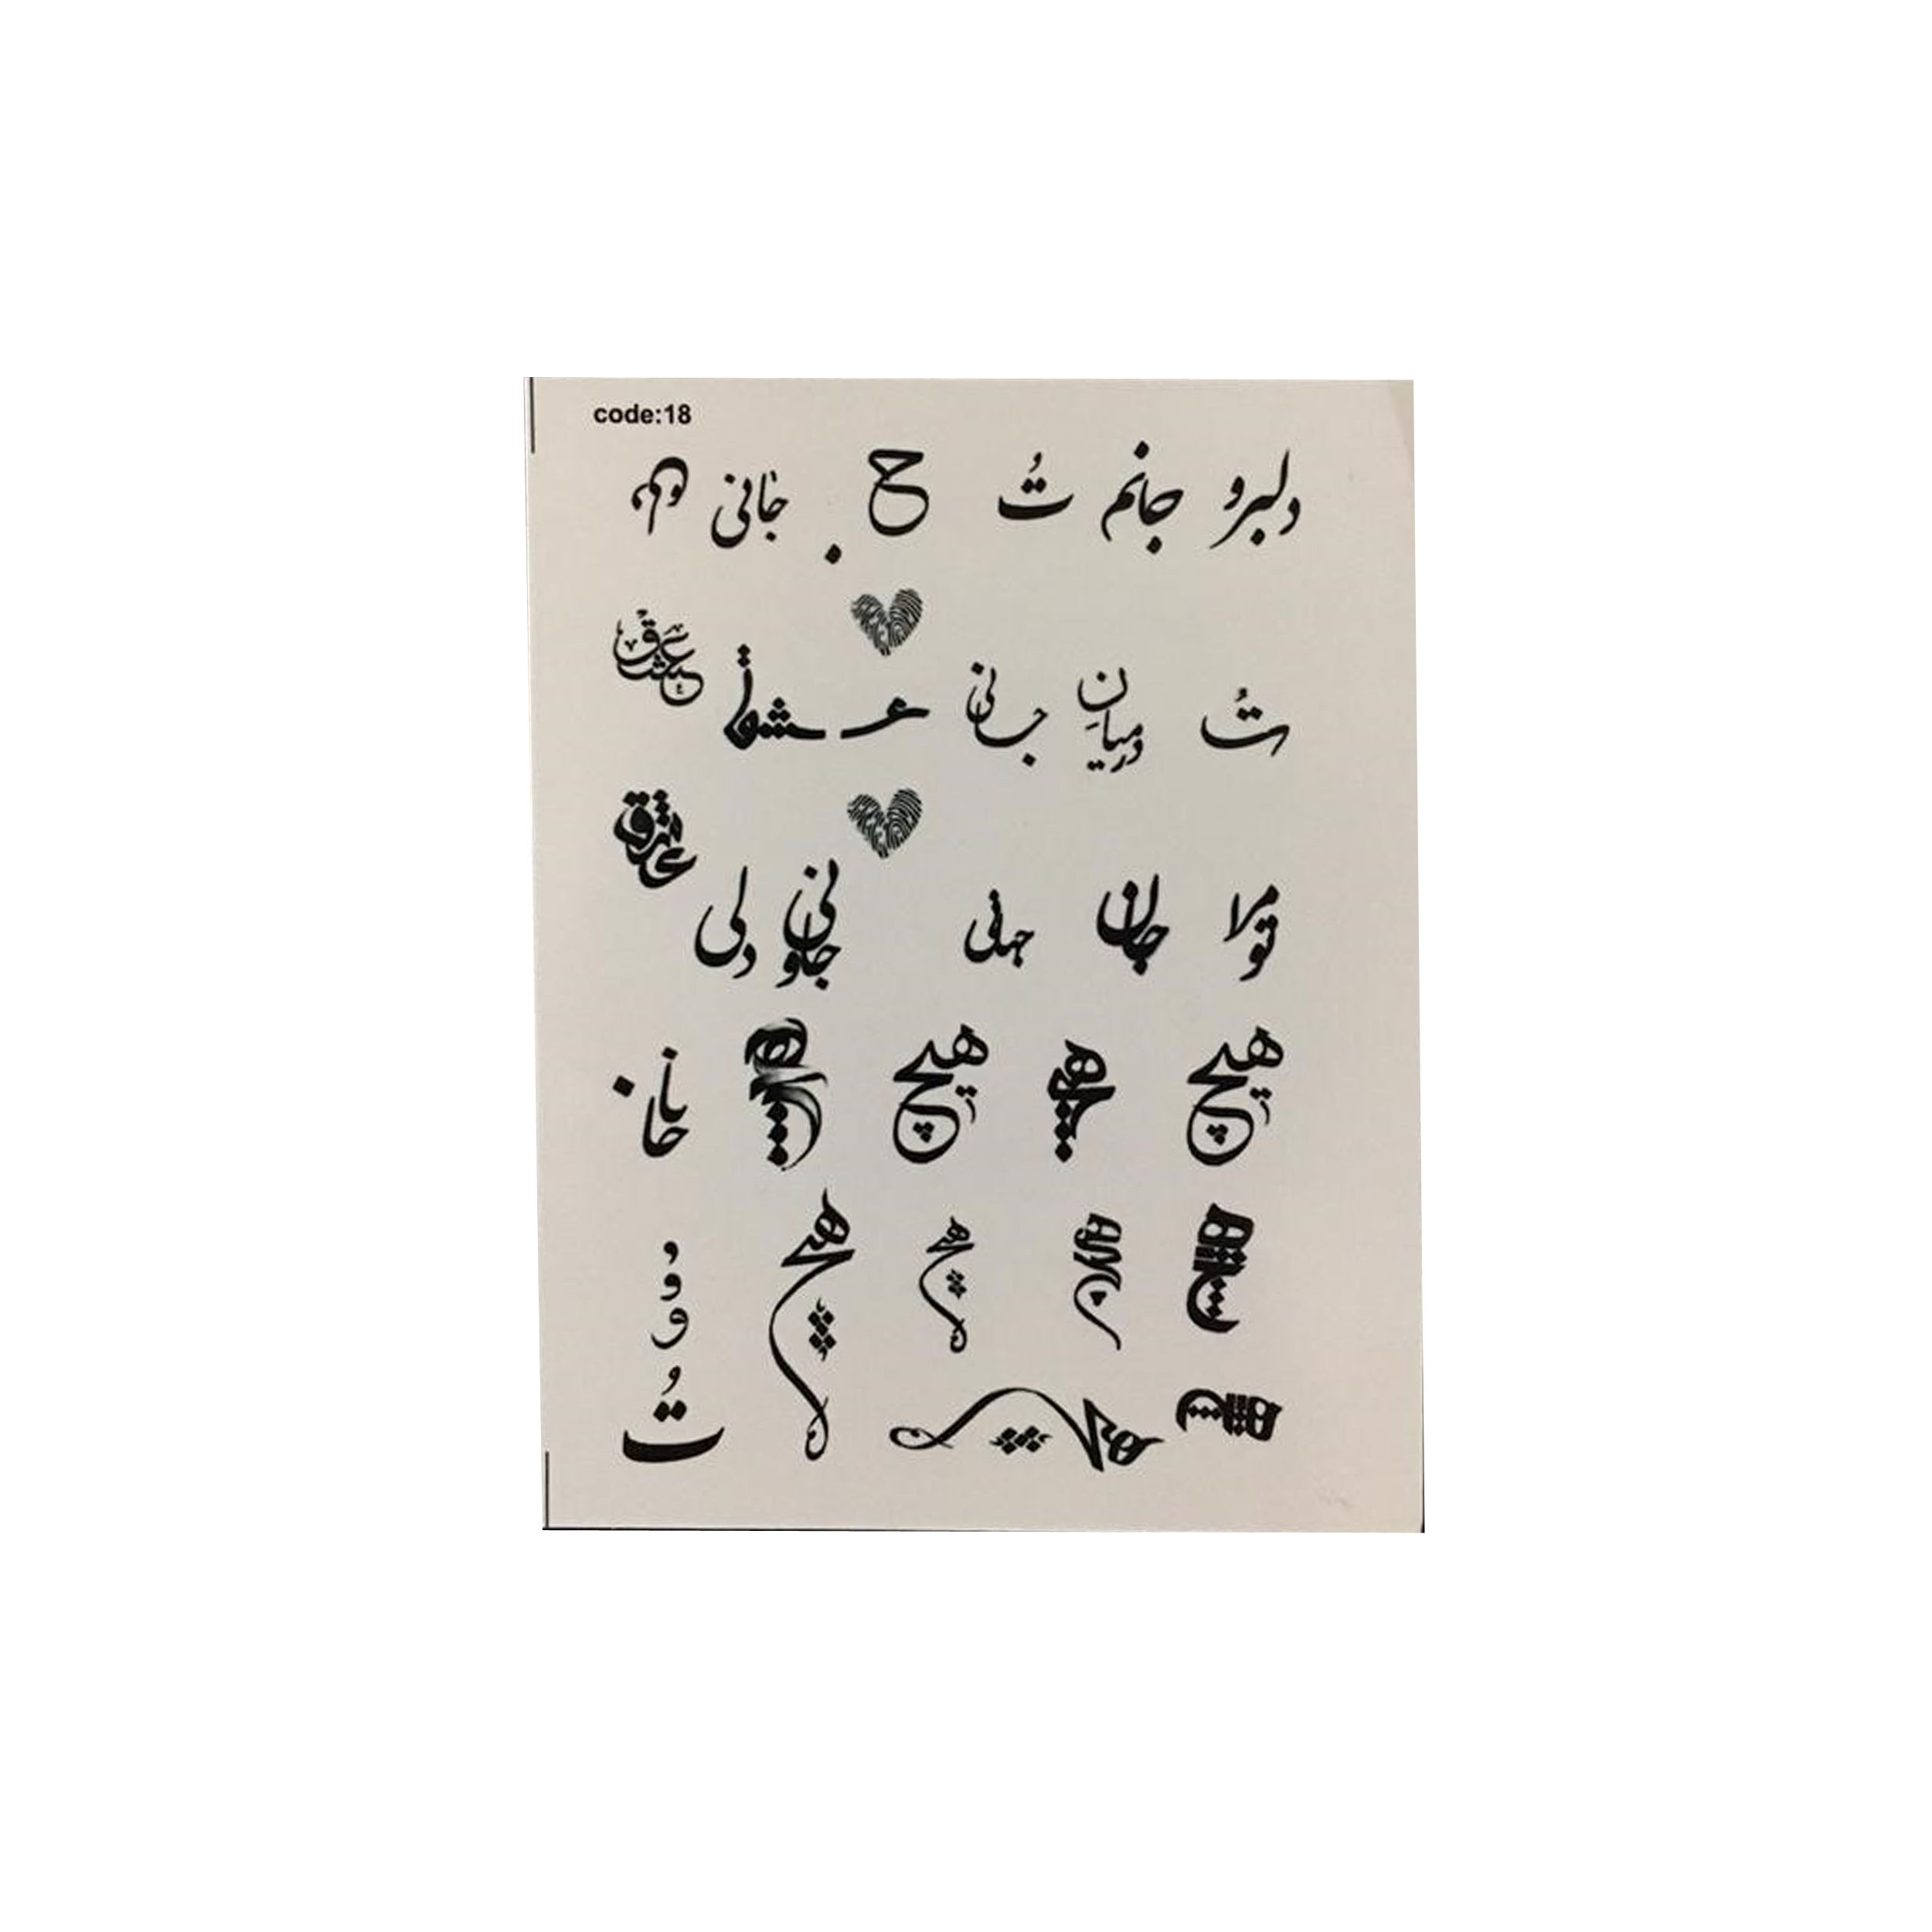 code:18
دلبرو جانم تُ ح جانی
تُ درمیانِ جانی عشق عشق
تو مرا جان جهانی جانی و دلی عشق
هیچ هیچ هیچ هیچ جانا
هیچ هیچ هیچ هیچ
هیچ هیچ تُ